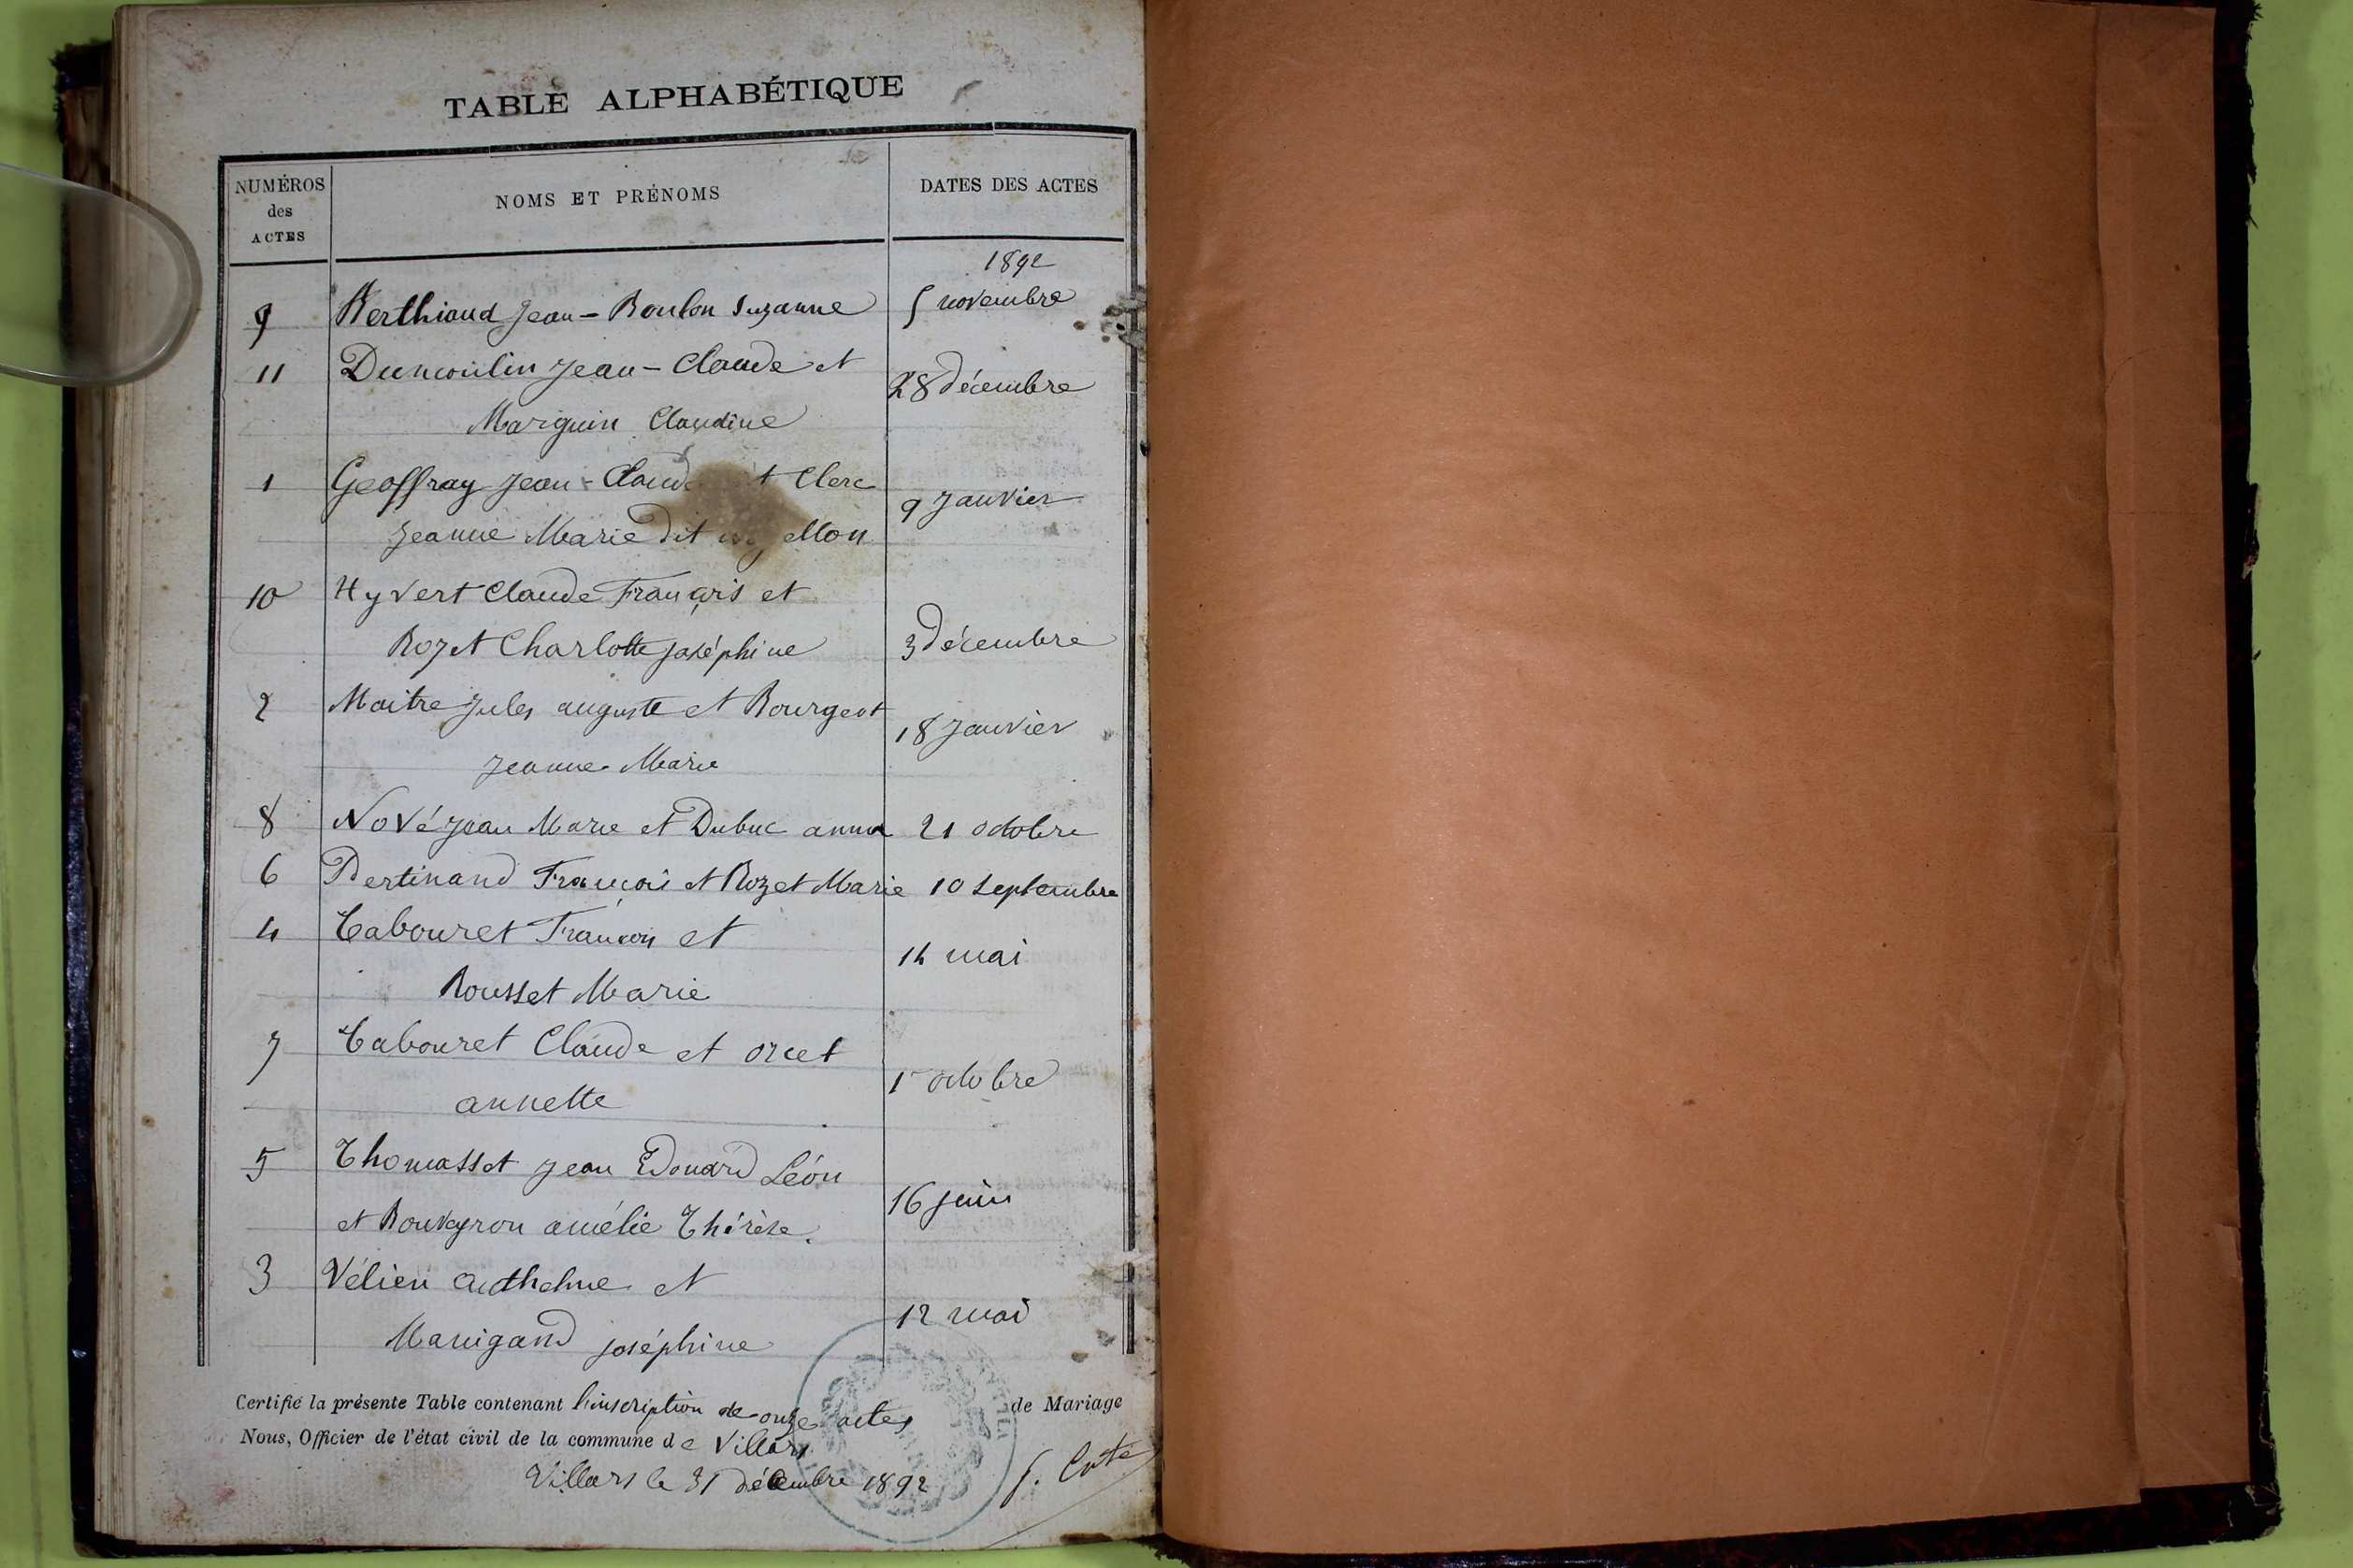 TABLE ALPHABÉTIQUE
NUMÉROS
des
ACTES
NOMS ET PRÉNOMS
DATES DES ACTES
1892
9 Berthiaud Jean - Boulon Suzanne 5 novembre
11 Dumoulin Jean-Claude et
28 décembre
Marguin Claudine
1 Geoffray Jean-Claude et Clerc
9 Janvier
Jeanne Marie dit
10 Hyvert Claude François et
Rozet Charlotte Joséphine 3 décembre
2 Maitre Jules auguste et Bourgeot
18 Janvier
Jeanne Marie
8 Nové Jean Marie et Dubuc anna 21 octobre
6 Pertinand François et Rozet Marie 10 septembre
4 Tabouret François et
14 mai
Rousset Marie
7 Tabouret Claude et Orcet
1er octobre
annette
5 Thomasset Jean Edouard Léon
16 juin
et Bouveyron amélie Thérèse.
3 Vélien anthelme et
12 mai
Manigand joséphine
Certifié la présente Table contenant l'inscription de onze actes de Mariage
Nous, Officier de l'état civil de la commune de Villars
Villars le 31 décembre 1892